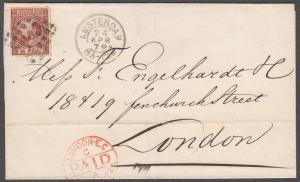 AMSTERDAM
24
APR
Mess J. Engelhardt &
18 & 19 fenchurch Street
London
LONDON-E.C
PAID